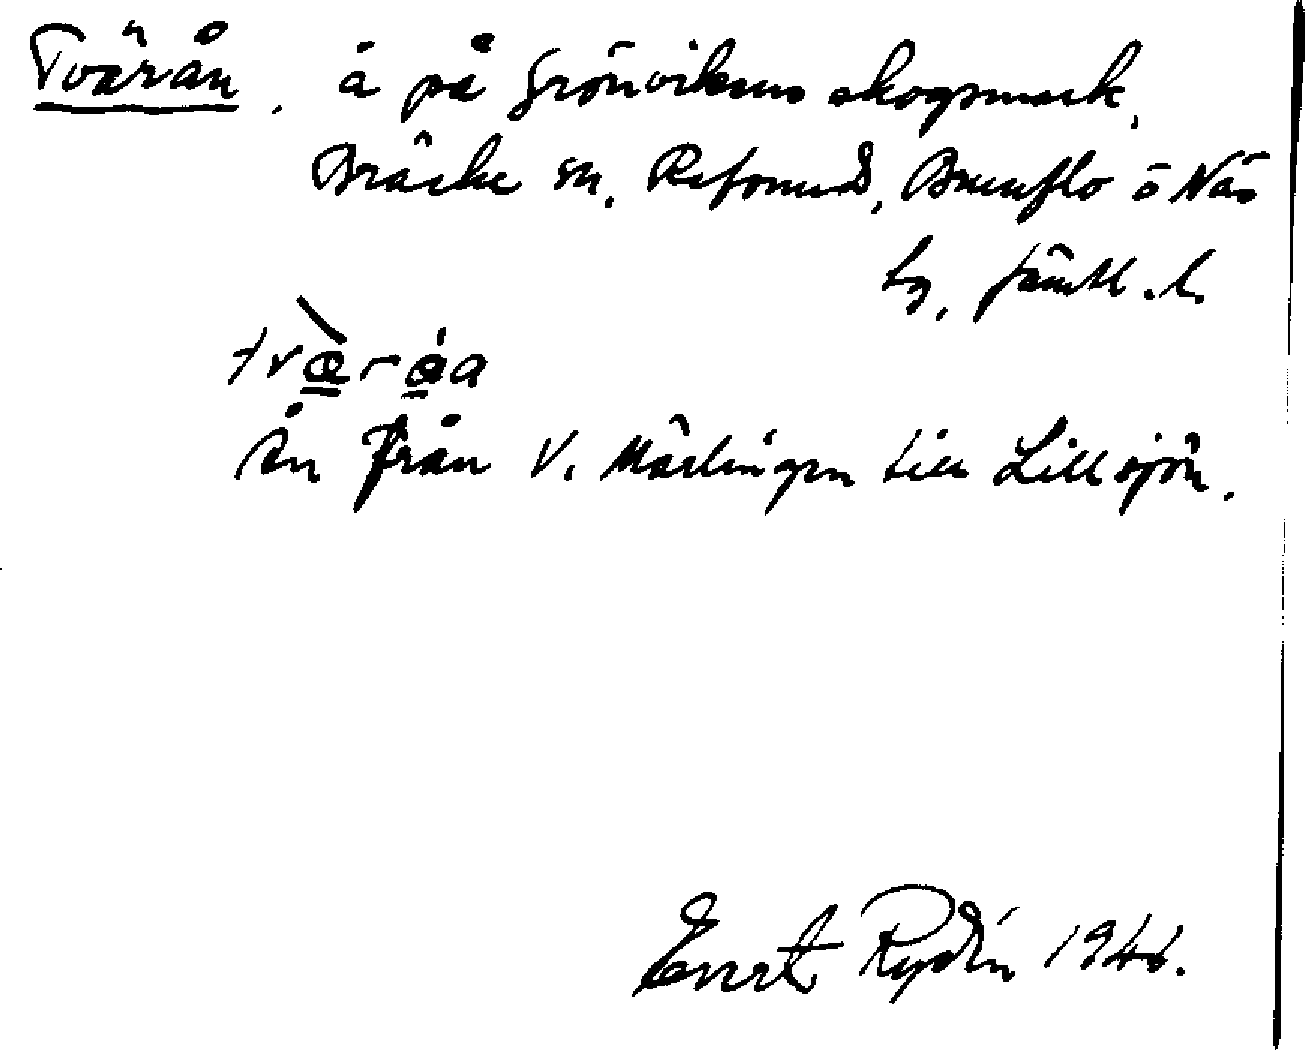 Tvärån, å på Grönvikens skogsmark,
Bräcke sn, Refsunds, Brunflo o Näs
tg, Jämtl. l.
tværåa
Ån från V. Märlingen till Lillsjön.
Evert Rydén 1946.